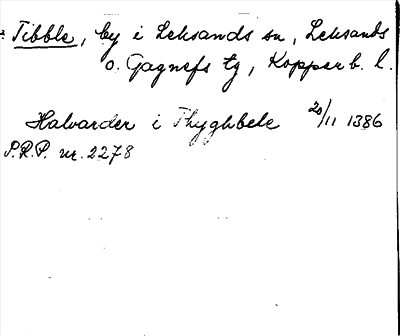 : Tibble, by i Leksands sn, Leksands
o. Gagnefs tg, Kopparb. l.
Halvarder i Thyghbele 20/11 1386
P.R.P. nr. 2278